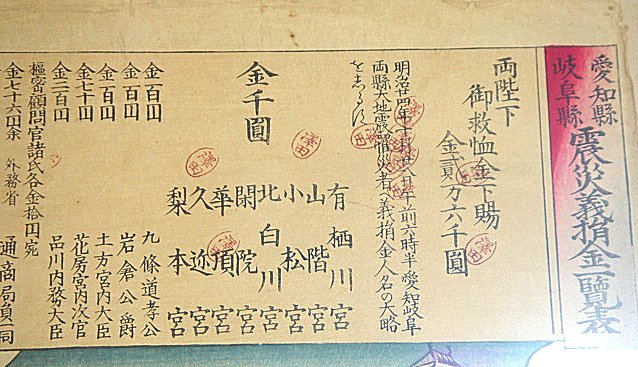 愛知縣
岐阜縣
震災義捐金一覽表
両陛下
御救恤金下賜
金貳万六千圓
明治廿四年十月廿八日午前六時半愛知岐阜
両縣大地震罹災者へ義捐金人名の大略
をしるす
金千圓
有栖川宮
山階宮
小松宮
北白川宮
閑院宮
華頂宮
久迩宮
梨本宮
金百円
九條道孝公
金百円
岩倉公爵
金百円
土方宮内大臣
金七十円
花房宮内次官
金二百円
品川内務大臣
樞密顧問官諸氏各金拾円宛
金七十六円余
外務省
通商局員一同